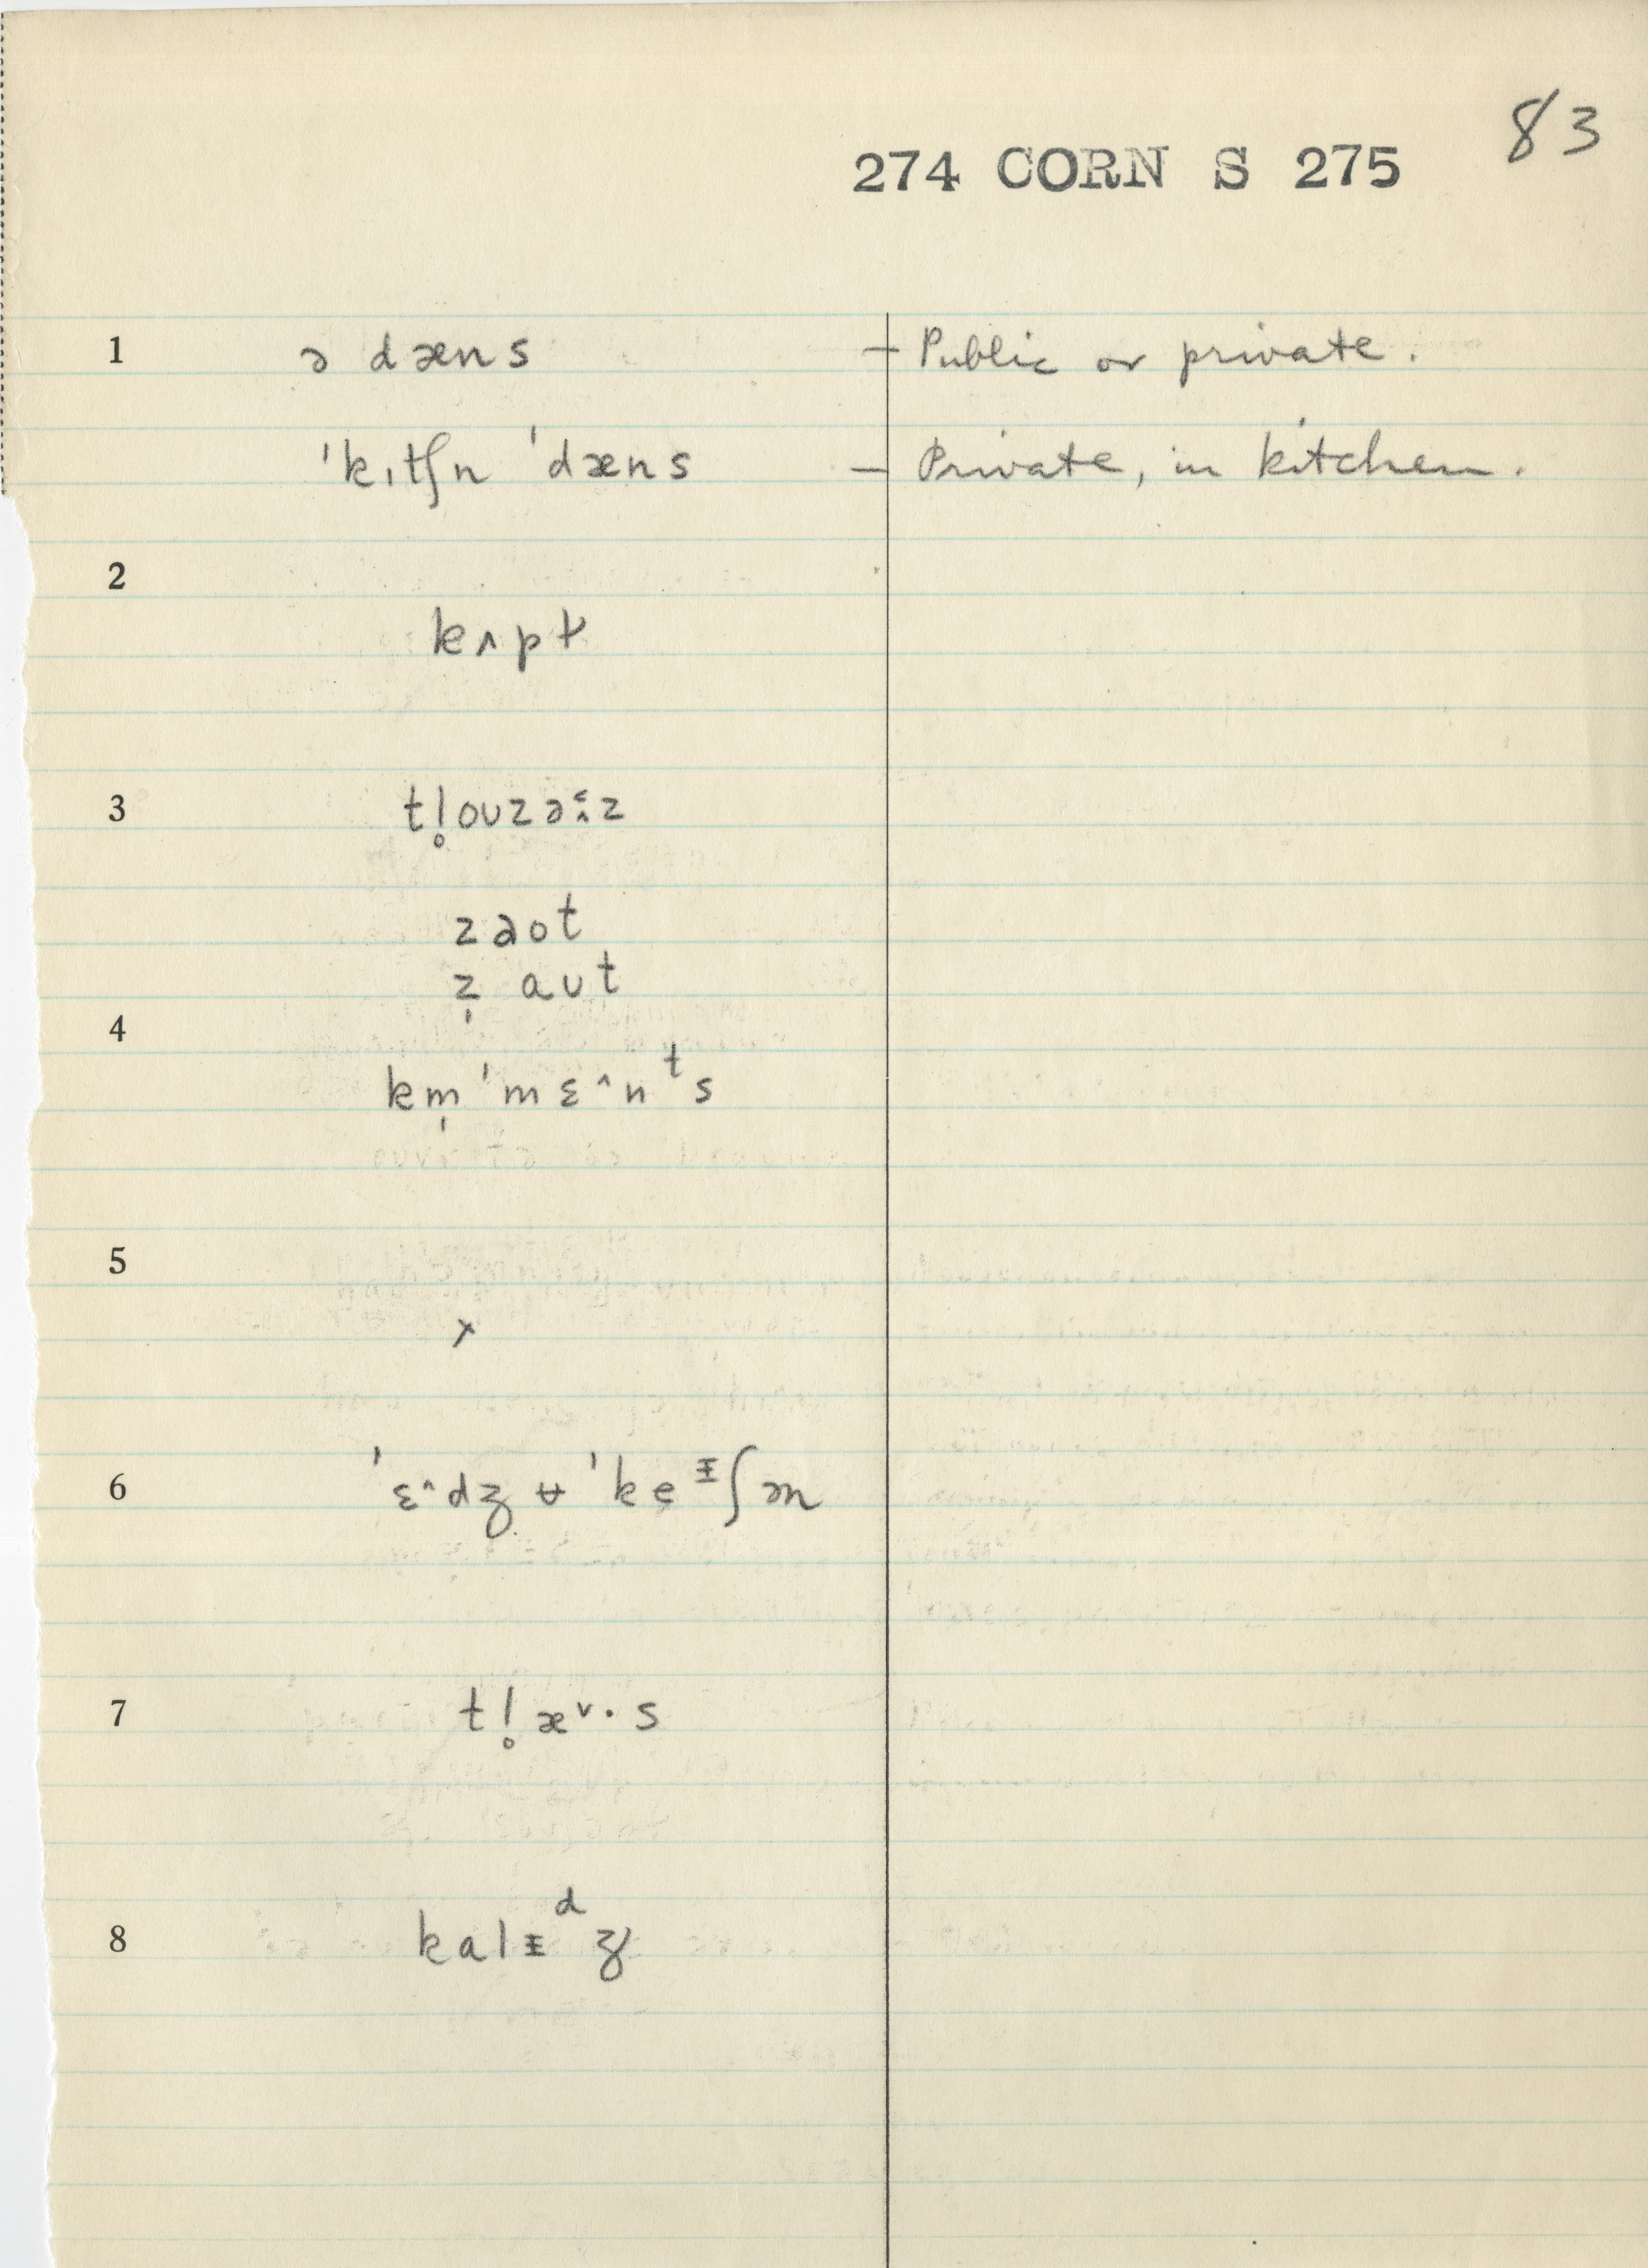 83
274 CORN S 275
1 ə dæns – Public or private.
ˈkɪtʃn ˈdæns – Private, in kitchen.
2
kʌpt
3 tl̥oʊzəɪz
zaot
z̩ aʊt
4
km̩ ˈmɛ^nᵗs
5
x
6 ˈɛ^dʒʉˈkeᵻʃən
7 tl̥æˇ·s
8 kalᵻᵈʒ